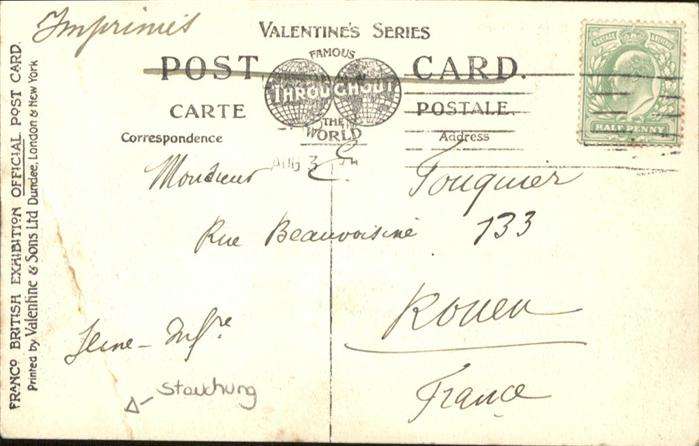 Imprimés
VALENTINE'S SERIES
FAMOUS
POST CARD.
THROUGHOUT
CARTE POSTALE.
THE
WORLD
Correspondence
Address
HALF PENNY
Monsieur Fouquier
Rue Beauvoisine 133
Rouen
Seine-Infre
France
Stauchung
FRANCO BRITISH EXHIBITION OFFICIAL POST CARD.
Printed by Valentine & Sons Ltd Dundee, London & New York